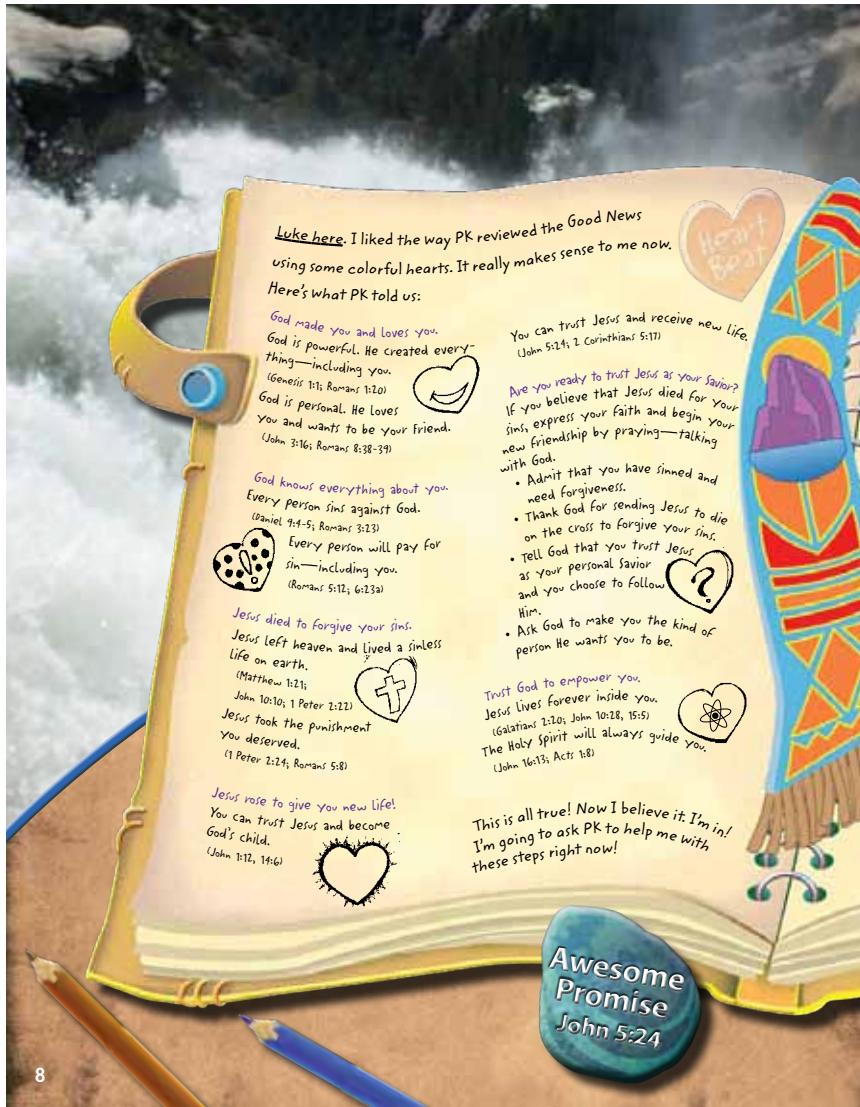 Luke here. I liked the way PK reviewed the Good News
using some colorful hearts. It really makes sense to me now.
Here's what PK told us:
Heart
Beat
God made you and loves you.
God is powerful. He created every-
thing—including you.
(Genesis 1:1; Romans 1:20)
God is personal. He loves
you and wants to be your friend.
(John 3:16; Romans 8:38-39)
God knows everything about you.
Every person sins against God.
(Daniel 9:4-5; Romans 3:23)
Every person will pay for
sin—including you.
(Romans 5:12; 6:23a)
Jesus died to forgive your sins.
Jesus left heaven and lived a sinless
life on earth.
(Matthew 1:21;
John 10:10; 1 Peter 2:22)
Jesus took the punishment
you deserved.
(1 Peter 2:24; Romans 5:8)
Jesus rose to give you new life!
You can trust Jesus and become
God's child.
(John 1:12, 14:6)
You can trust Jesus and receive new life.
(John 5:24; 2 Corinthians 5:17)
Are you ready to trust Jesus as your Savior?
If you believe that Jesus died for your
sins, express your faith and begin your
new friendship by praying—talking
with God.
• Admit that you have sinned and
need forgiveness.
• Thank God for sending Jesus to die
on the cross to forgive your sins.
• Tell God that you trust Jesus
as your personal Savior
and you choose to follow
Him.
• Ask God to make you the kind of
person He wants you to be.
?
Trust God to empower you.
Jesus lives forever inside you.
(Galatians 2:20; John 10:28, 15:5)
The Holy Spirit will always guide you.
(John 16:13; Acts 1:8)
This is all true! Now I believe it. I'm in!
I'm going to ask PK to help me with
these steps right now!
Awesome
Promise
John 5:24
8